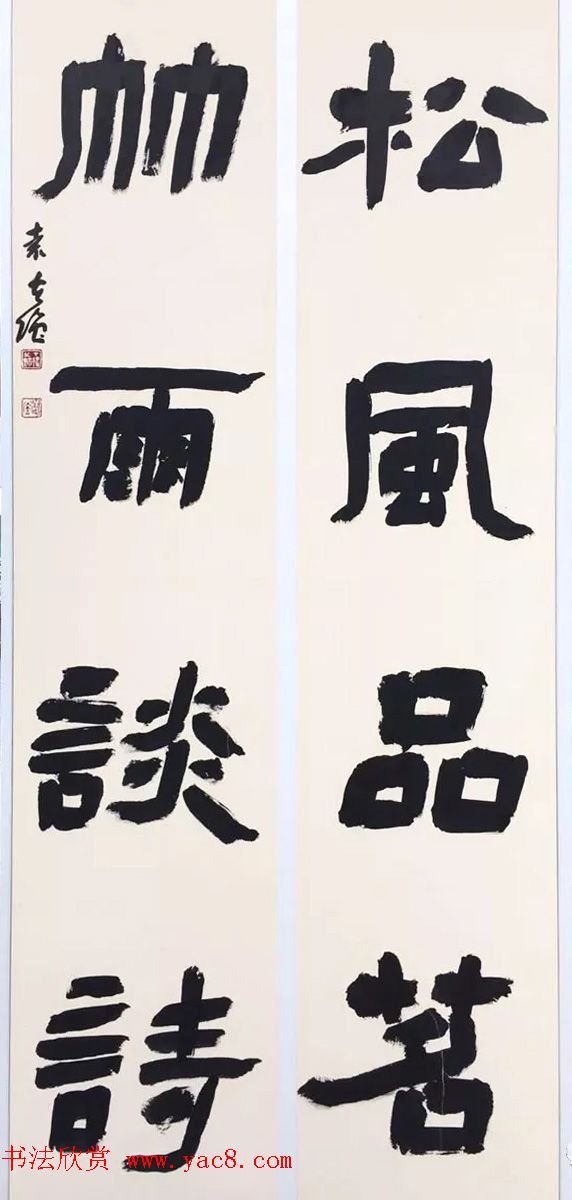 松風品茗
竹雨談詩
袁
书法欣赏 www.yac8.com